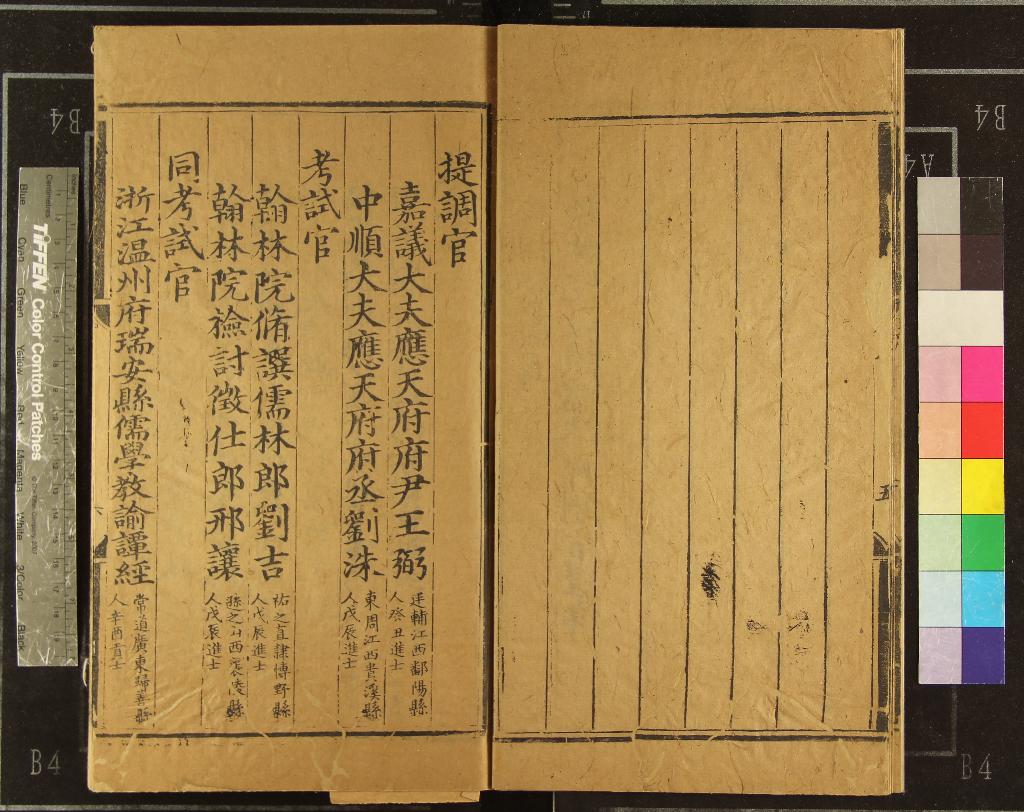 五
提調官
嘉議大夫應天府府尹王弼 廷輔江西鄱陽縣人癸丑進士
中順大夫應天府府丞劉洙 東周江西貴溪縣人戊辰進士
考試官
翰林院脩譔儒林郎劉吉 祐之直隸博野縣人戊辰進士
翰林院檢討徵仕郎邢讓 遜之山西襄陵縣人戊辰進士
同考試官
浙江温州府瑞安縣儒學教諭譚經 常道廣東歸善縣人辛酉貢士
B4
B4
A4
B4
B4
TIFFEN Color Control Patches
Blue Cyan Green Yellow Red Magenta White 3/Color Black
Centimetres